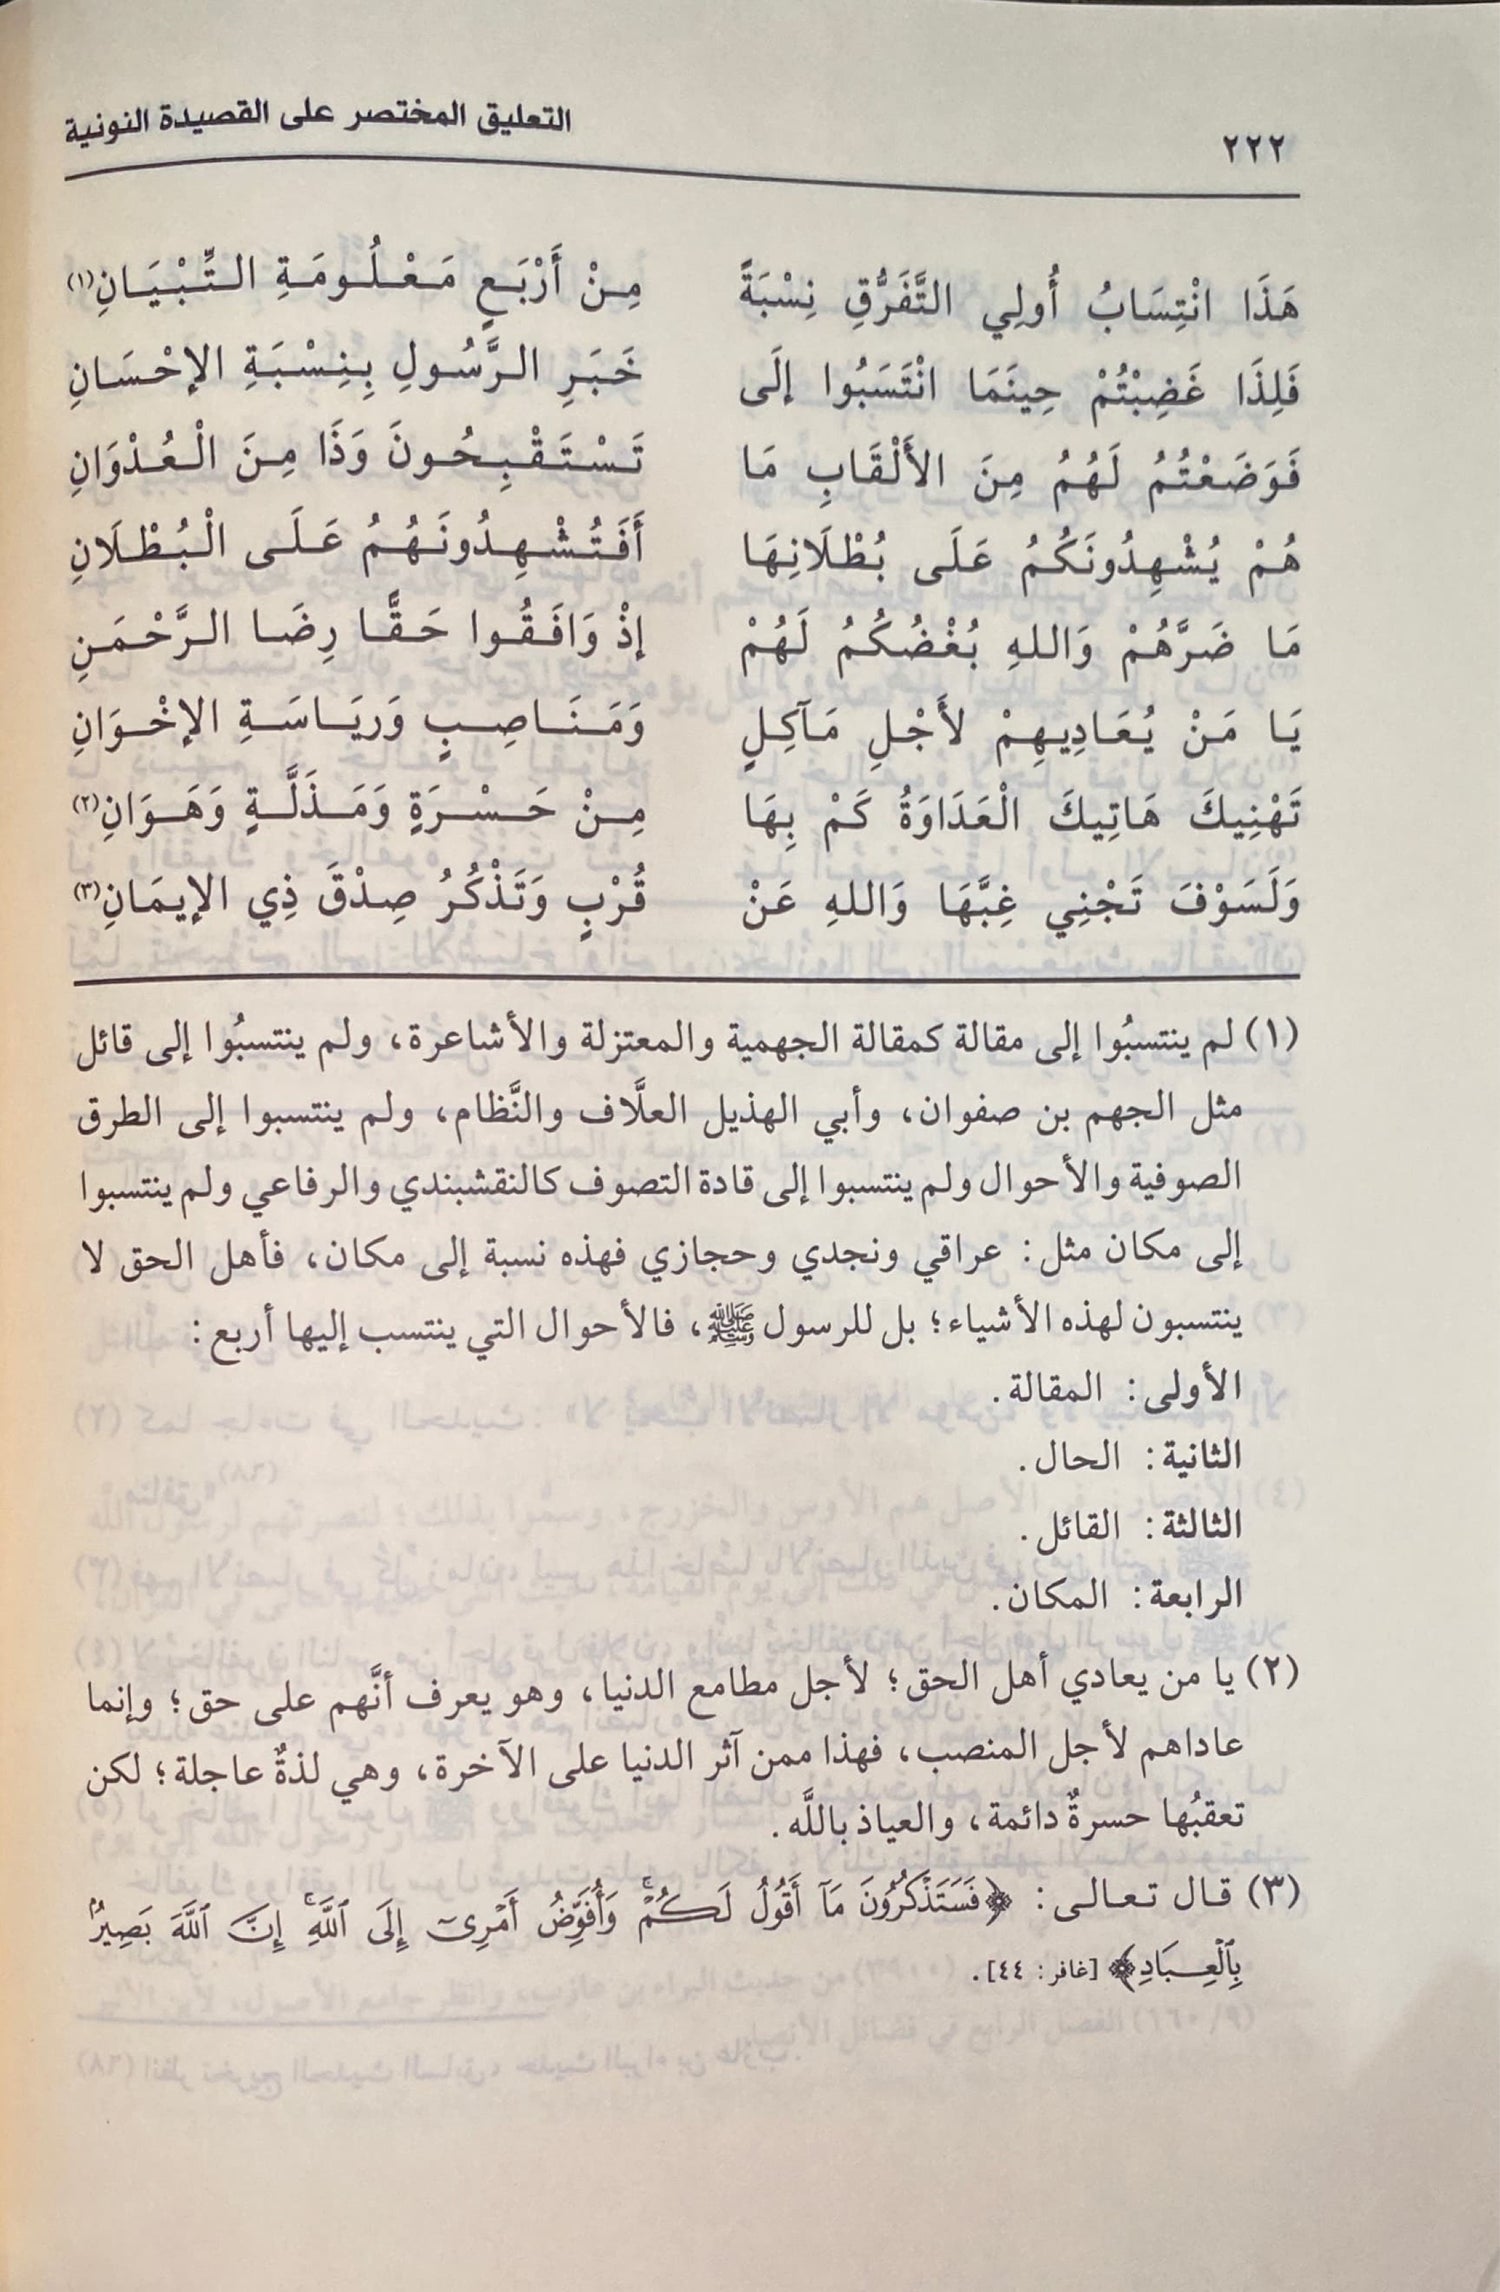 التعليق المختصر على القصيدة النونية
٢٢٢
هَذَا انْتِسَابُ أُولِي التَّفَرُّقِ نِسْبَةً مِنْ أَرْبَعٍ مَعْلُومَةِ التِّبْيَانِ(١)
فَلِذَا غَضِبْتُمْ حِينَمَا انْتَسَبُوا إلَى خَبَرِ الرَّسُولِ بِنِسْبَةِ الإحْسَانِ
فَوَضَعْتُمُ لَهُمُ مِنَ الأَلْقَابِ مَا تَسْتَقْبِحُونَ وَذَا مِنَ الْعُدْوَانِ
هُمْ يُشْهِدُونَكُمُ عَلَى بُطْلَانِهَا أَفَتُشْهِدُونَهُمُ عَلَى الْبُطْلَانِ
مَا ضَرَّهُمْ وَاللهِ بُغْضُكُمُ لَهُمْ إذْ وَافَقُوا حَقًّا رِضَا الرَّحْمَنِ
يَا مَنْ يُعَادِيهِمْ لأَجْلِ مَآكِلٍ وَمَنَاصِبٍ وَرِيَاسَةِ الإخْوَانِ
تَهْنِيكَ هَاتِيكَ الْعَدَاوَةُ كَمْ بِهَا مِنْ حَسْرَةٍ وَمَذَلَّةٍ وَهَوَانِ(٢)
وَلَسَوْفَ تَجْنِي غِبَّهَا وَاللهِ عَنْ قُرْبٍ وَتَذْكُرُ صِدْقَ ذِي الإيمَانِ(٣)
(١) لم ينتسبُوا إلى مقالة كمقالة الجهمية والمعتزلة والأشاعرة، ولم ينتسبُوا إلى قائل
مثل الجهم بن صفوان، وأبي الهذيل العلَّاف والنَّظام، ولم ينتسبوا إلى الطرق
الصوفية والأحوال ولم ينتسبوا إلى قادة التصوف كالنقشبندي والرفاعي ولم ينتسبوا
إلى مكان مثل: عراقي ونجدي وحجازي فهذه نسبة إلى مكان، فأهل الحق لا
ينتسبون لهذه الأشياء؛ بل للرسول ﷺ، فالأحوال التي ينتسب إليها أربع:
الأولى: المقالة.
الثانية: الحال.
الثالثة: القائل.
الرابعة: المكان.
(٢) يا من يعادي أهل الحق؛ لأجل مطامع الدنيا، وهو يعرف أنَّهم على حق؛ وإنما
عاداهم لأجل المنصب، فهذا ممن آثر الدنيا على الآخرة، وهي لذةٌ عاجلة؛ لكن
تعقبُها حسرةٌ دائمة، والعياذ باللَّه.
(٣) قال تعالى: ﴿فَسَتَذْكُرُونَ مَآ أَقُولُ لَكُمْۚ وَأُفَوِّضُ أَمْرِىٓ إِلَى ٱللَّهِۚ إِنَّ ٱللَّهَ بَصِيرٌۢ
بِٱلْعِبَادِ﴾ [غافر: ٤٤].